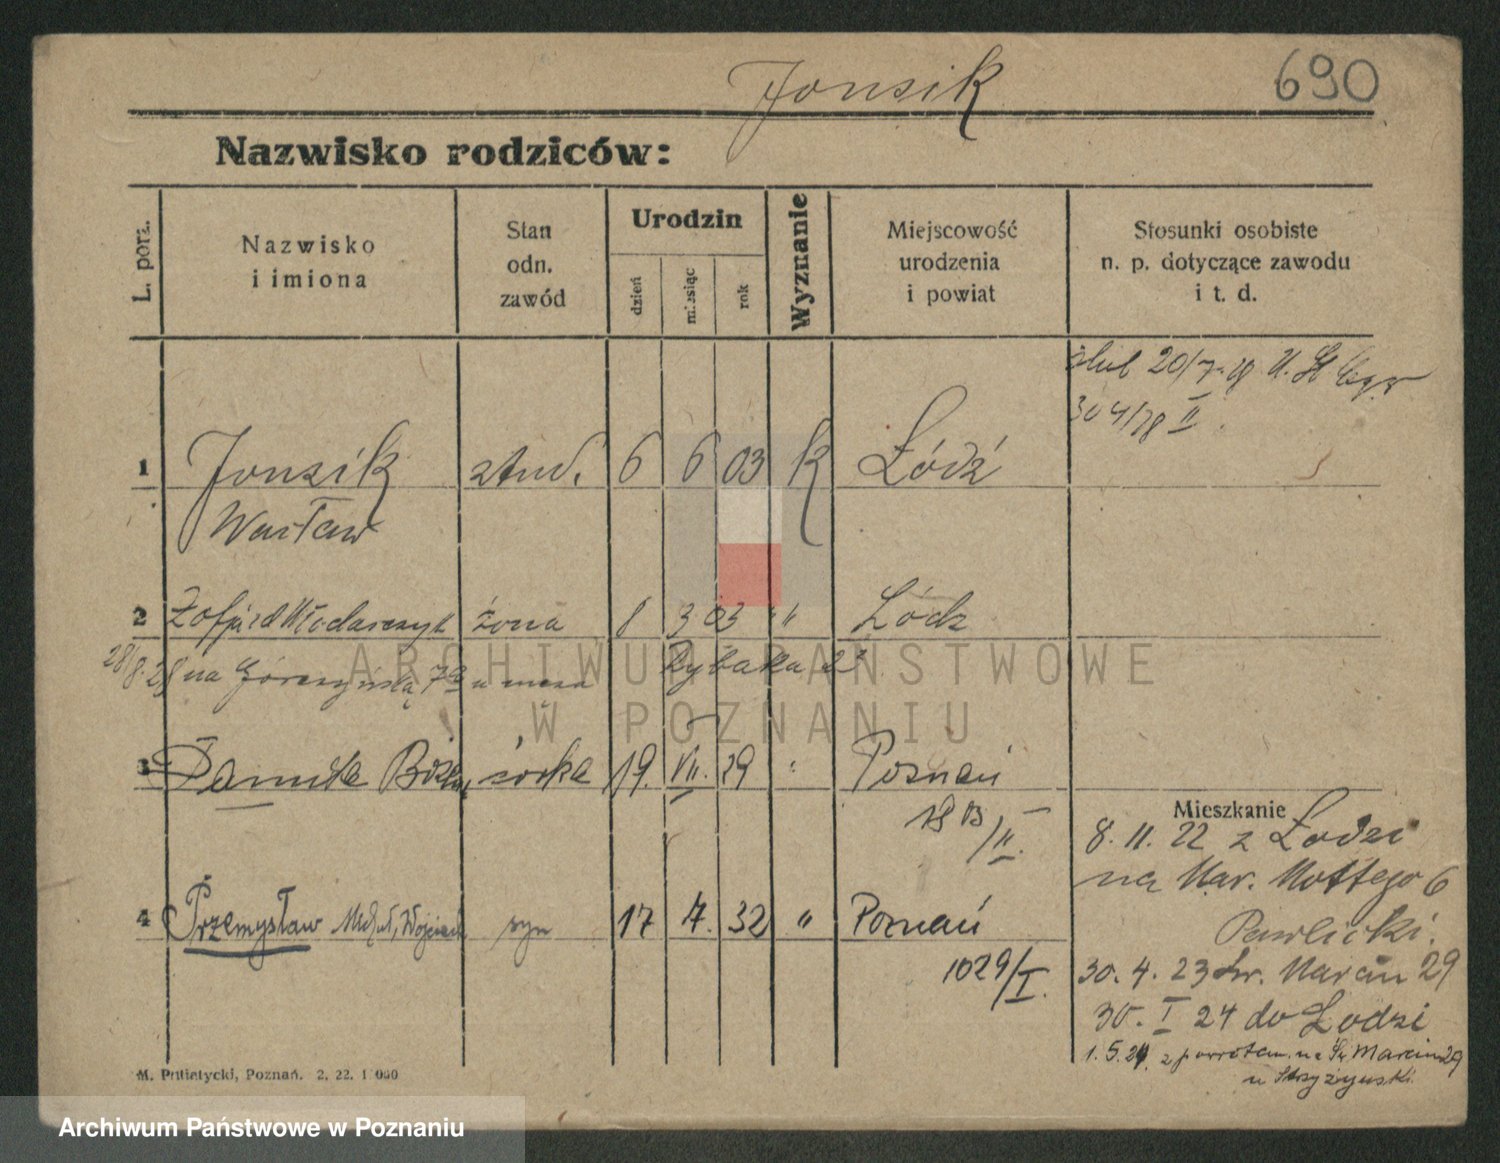 Jonsik 690
Nazwisko rodziców:
L. porz.
Nazwisko
i imiona
Stan
odn.
zawód
Urodzin
dzień
miesiąc
rok
Wyznanie
Miejscowość
urodzenia
i powiat
Stosunki osobiste
n. p. dotyczące zawodu
i t. d.
ślub 20/7. 28 U. St.
304/28 II
1 Jonsik stud. 6 6 03 k Łódź
Wacław
2 Zofja zd Włodarczyk żona 8 3 03 " Łódz
28/8. 28 na Górczyńską 7a u męża Rybaki 22
3 Danuta córka 19. VII. 29 " Poznań
II.
4 Przemysław Michał, Wojciech syn 17 7. 32 " Poznań
1029/I.
Mieszkanie
8. 11. 22 z Łodzi
na Mar. Mottego 6
Pawlicki.
30. 4. 23 Św. Marcin 29
30. I 24 do Łodzi
1. 5. 24. z powrotem. na Św Marcin 29
u Strzyżyński.
M. Putiatycki, Poznań. 2. 22. 1 000
ARCHIWUM PAŃSTWOWE
W POZNANIU
Archiwum Państwowe w Poznaniu